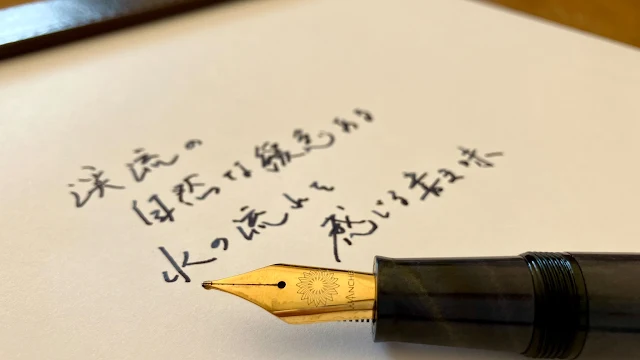 渓流の
自然な緩急ある
水の流れを
感じる書き味
WANCHE